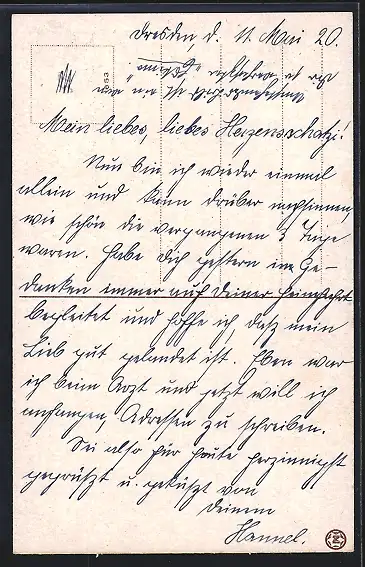 Dresden, d. 11. Mai 20.
Mein liebes, liebes Herzensschatzi!
Nun bin ich wieder einmal
allein und kann drüber nachsinnen,
wie schön die vergangenen 3 Tage
waren. Habe Dich gestern im Ge-
danken immer auf Deiner Heimfahrt
begleitet und hoffe ich, daß mein
Lieb gut gelandet ist. Eben war
ich beim Arzt und jetzt will ich
anfangen, Adressen zu schreiben.
Sei also für heute herzinnigst
gegrüßt u. geküßt von
Deinem
Hannel.